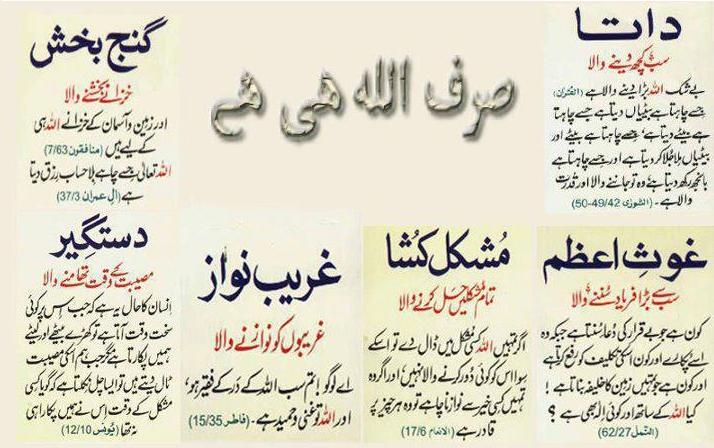 صرف الله هی هے
داتا
سب کچھ دینے والا
بے شک اللہ بڑا دینے والا ہے (القرآن)
جسے چاہتا ہے بیٹیاں دیتا ہے جسے چاہتا
ہے بیٹے دیتا ہے، جسے چاہتا ہے بیٹے اور
بیٹیاں ملا جلا کر دیتا ہے اور جسے چاہتا ہے
بانجھ رکھ دیتا ہے وہ تو جاننے والا اور قدرت
والا ہے۔ (الشورٰی 42/49-50)
گنج بخش
خزانے بخشنے والا
اور زمین و آسمان کے خزانے اللہ ہی
کے لیے ہیں (منافقون 7/63)
اللہ تعالیٰ جسے چاہے بلا حساب رزق دیتا
ہے (ال عمران 37/3)
غوثِ اعظم
سب سے بڑا فریاد سننے والا
کون ہے جو بے قرار کی دعا سنتا ہے جبکہ وہ
اُسے پکارے اور کون اسکی تکلیف کو رفع کرتا ہے
اور کون ہے جو تمہیں زمین کا خلیفہ بناتا ہے !
کیا اللہ کے ساتھ اور کوئی الٰہ بھی ہے ؟
(النمل 62/27)
مُشکل کُشا
تمام مشکلیں حل کرنے والا
اگر تمہیں اللہ کسی مشکل میں ڈال دے تو اسکے
سوا اس کو کوئی دُور کرنے والا نہیں اور اگر وہ
تمہیں کسی خیر سے نوازنا چاہے تو وہ ہر چیز پر
قادر ہے (الانعام 17/6)
غریب نواز
غریبوں کو نوازنے والا
اے لوگو! تم سب اللہ کے در کے فقیر ہو،
اور اللہ تو غنی و حمید ہے۔ (فاطر 15/35)
دستگیر
مصیبت کے وقت تھامنے والا
انسان کا حال یہ ہے کہ جب اس پر کوئی
سخت وقت آتا ہے تو کھڑے بیٹھے اور لیٹے
ہمیں پکارتا ہے مگر جب ہم اسکی مصیبت
ٹال دیتے ہیں تو ایسا چل نکلتا ہے کہ گویا کسی
مشکل کے وقت اس نے ہمیں پکارا ہی
نہ تھا (یونس 12/10)